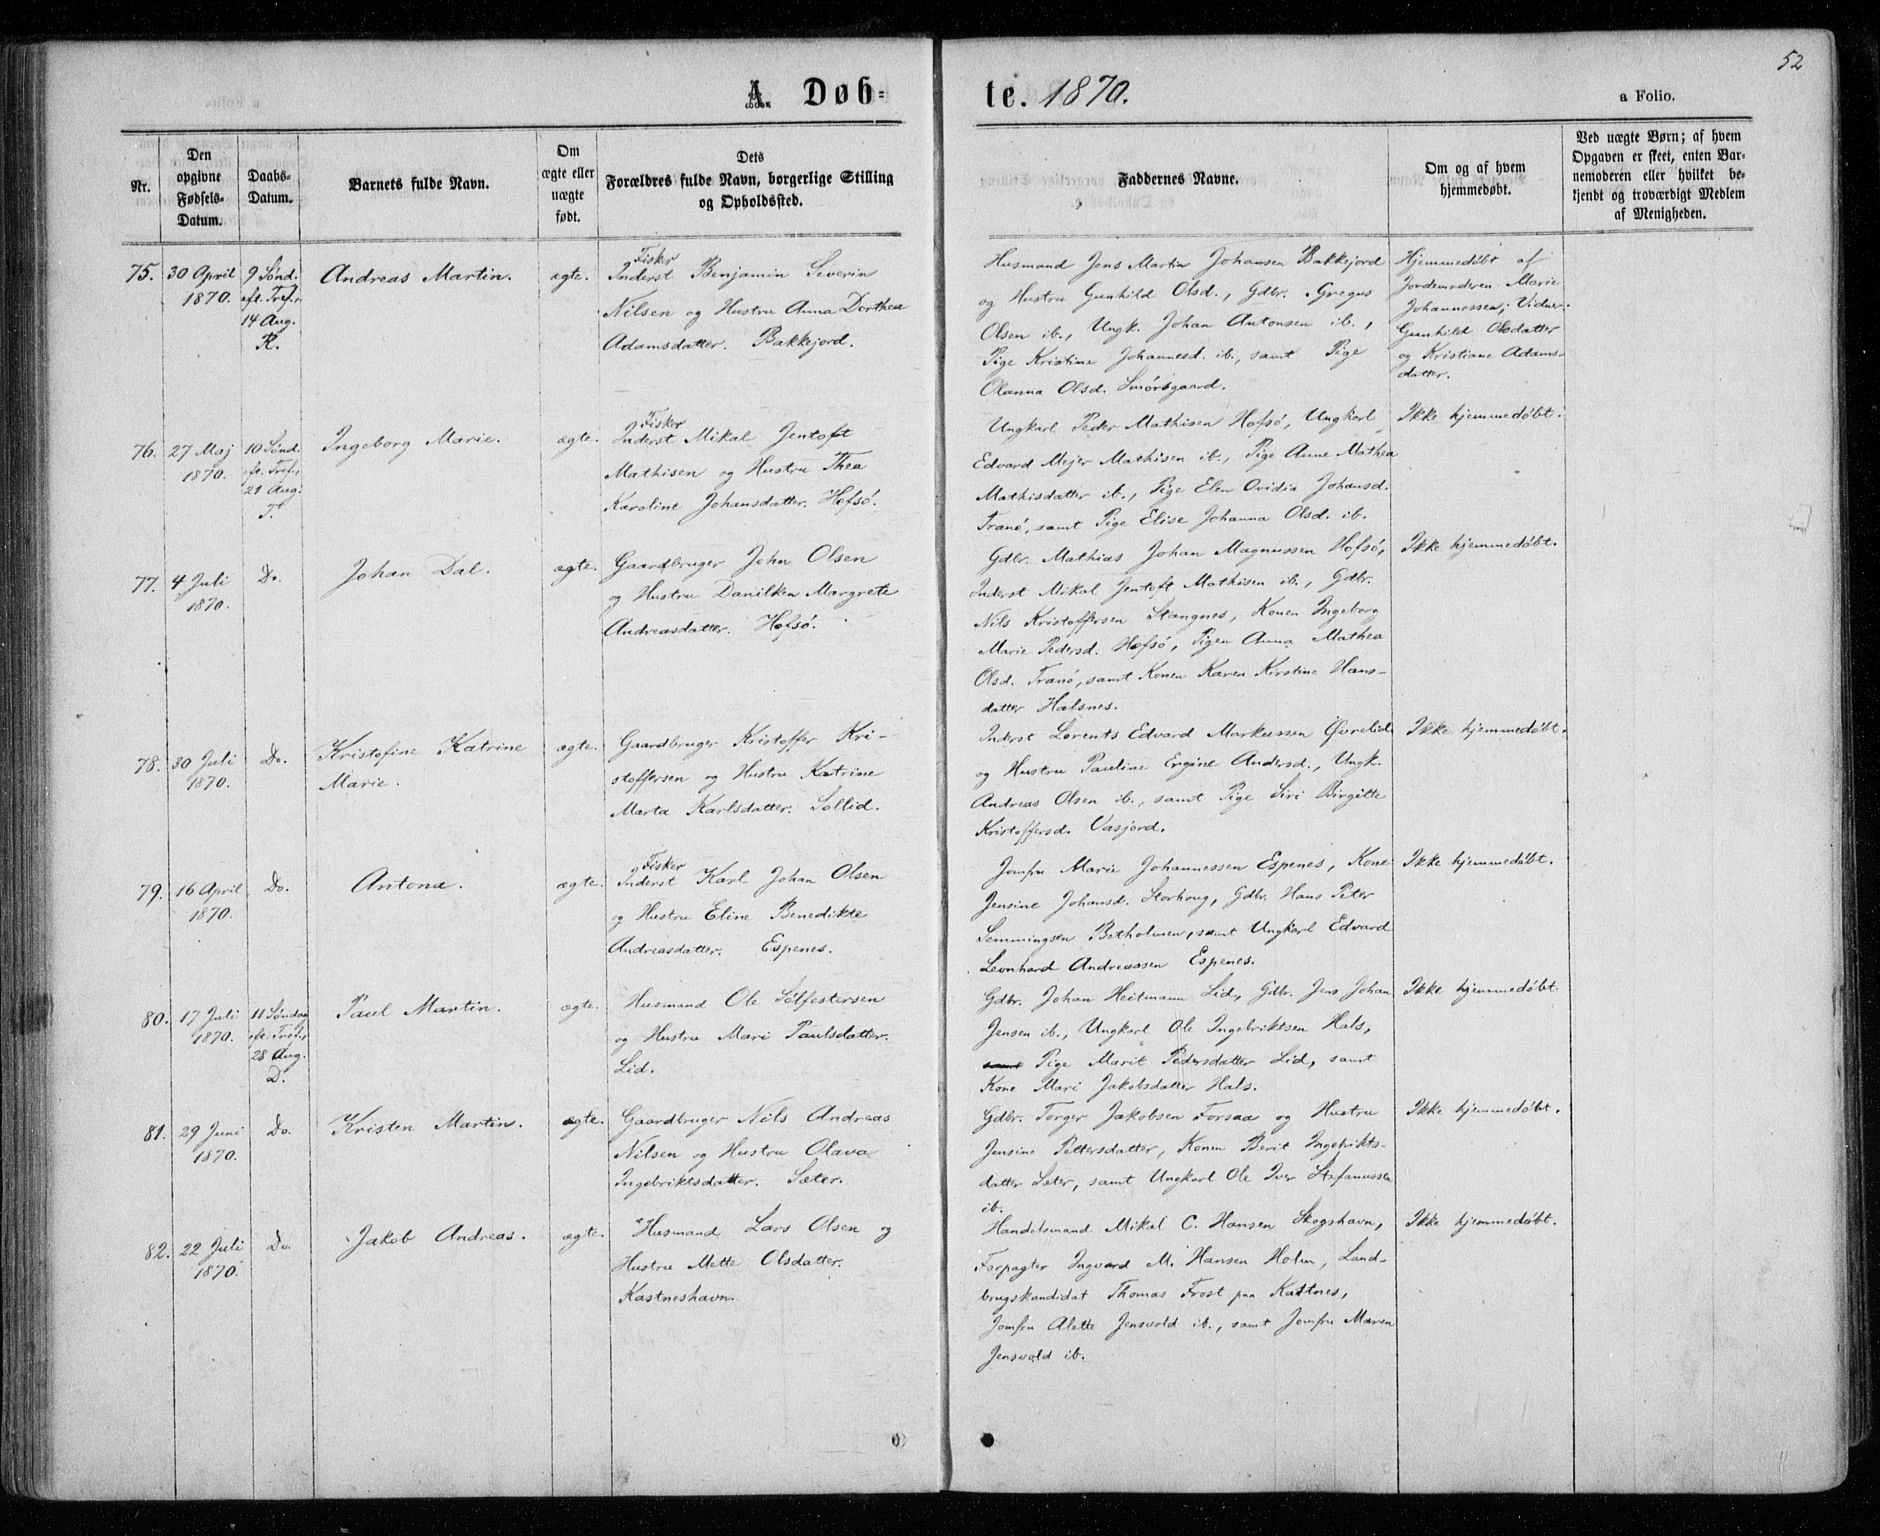 52
A. Døb-
te. 1870.
a Folio.
Nr.
Den
opgivne
Fødsels-
Datum.
Daabs-
Datum.
Barnets fulde Navn.
Om
ægte eller
uægte
født.
Dets
Forældres fulde Navn, borgerlige Stilling
og Opholdssted.
Faddernes Navne.
Om og af hvem
hjemmedøbt.
Ved uægte Børn; af hvem
Opgaven er skeet, enten Bar-
nemoderen eller hvilket be-
kjendt og troværdigt Medlem
af Menigheden.
75.
30 April
1870.
9 Sønd.
eft. Tref.,
14 Aug.
R.
Andreas Martin.
ægte.
Fisker
Inderst Benjamin Severin
Nilsen og Hustru Anna Dorthea
Adamsdatter. Bakkejord.
Husmand Jens Martin Johansen Bakkejord
og Hustru Gunhild Olsd., Gdbr. Gregus
Olsen ib., Ungk. Johan Antonsen ib.,
Pige Kristine Johannesd. ib., samt Pige
Olanna Olsd. Smörsgaard.
Hjemmedøbt af
Jordemoderen Marie
Johannessen; Vidner:
Gunhild Olsdatter
og Kristiane Adams-
datter.
76.
27 Maj
1870.
10 Sønd.
eft. Tref.,
21 Aug.
T.
Ingeborg Marie.
ægte.
Fisker
Inderst Mikal Jentoft
Mathisen og Hustru Thea
Karoline Johansdatter. Hofsø.
Ungkarl Peder Mathisen Hofsø, Ungkarl
Edvard Mejer Mathisen ib., Pige Anne Mathea
Mathisdatter ib., Pige Elen Ovidia Johansd.
Tranø, samt Pige Elise Johanna Olsd. ib.
Ikke hjemmedøbt.
77.
4 Juli
1870.
Do.
Johan Dal.
ægte.
Gaardbruger John Olsen
og Hustru Danilken Margrete
Andreasdatter. Hofsø.
Gdbr. Mathias Johan Magnussen Hofsø,
Inderst Mikal Jentoft Mathisen ib., Gdbr.
Nils Kristoffersen Stangnes, Konen Ingeborg
Marie Pedersd. Hofsø, Pigen Anna Mathea
Olsd. Tranø, samt Konen Karen Kirstine Hans-
datter Halsnes.
Ikke hjemmedøbt.
78.
30 Juli
1870.
Do.
Kristofine Katrine
Marie.
ægte.
Gaardbruger Kristoffer Kri-
stoffersen og Hustru Katrine
Marta Karlsdatter. Sollid.
Inderst Lorents Edvard Markussen Øvrelid
og Hustru Pauline Ergine Andersd., Ungk.
Andreas Olsen ib., samt Pige Siri Birgitte
Kristoffersd. Vasjord.
Ikke hjemmedøbt.
79.
16 April
1870.
Do.
Antona.
ægte.
Fisker
Inderst Karl Johan Olsen
og Hustru Eline Benedikte
Andreasdatter. Espenes.
Jomfru Marie Johannessen Espenes, Kone
Jensine Johansd. Storhoug, Gdbr. Hans Peter
Lemmingsen Betholmen, samt Ungkarl Edvard
Leonhard Andreassen Espenes.
Ikke hjemmedøbt.
80.
17 Juli
1870.
11 Søndag
eft. Tref.,
28 Aug.
D.
Paul Martin.
ægte.
Husmand Ole Sölfestersen
og Hustru Mari Paulsdatter.
Lid.
Gdbr. Johan Heitmann Lid, Gdbr. Jens Johan
Jensen ib., Ungkarl Ole Ingebriktsen Hals,
samt Pige Marit Pedersdatter Lid, samt
Kone Mari Jakobsdatter Hals.
Ikke hjemmedøbt.
81.
29 Juni
1870.
Do.
Kristen Martin.
ægte.
Gaardbruger Nils Andreas
Nilsen og Hustru Olava
Ingebriktsdatter. Sæter.
Gdbr. Torger Jakobsen Forsaa og Hustru
Jensine Pettersdatter, Konen Berit Ingebrikts-
datter Sæter, samt Ungkarl Ole Iver Stefanussen
ib.
Ikke hjemmedøbt.
82.
22 Juli
1870.
Do.
Jakob Andreas.
ægte.
Husmand Lars Olsen og
Hustru Mette Olsdatter.
Kastneshavn.
Handelsmand Mikal C. Hansen Skogshavn,
Forpagter Ingvard M. Hansen Holm, Land-
brugskandidat Thomas Frost paa Kastnes,
Jomfru Alette Jensvold ib., samt Jomfru Maren
Jensvold ib.
Ikke hjemmedøbt.